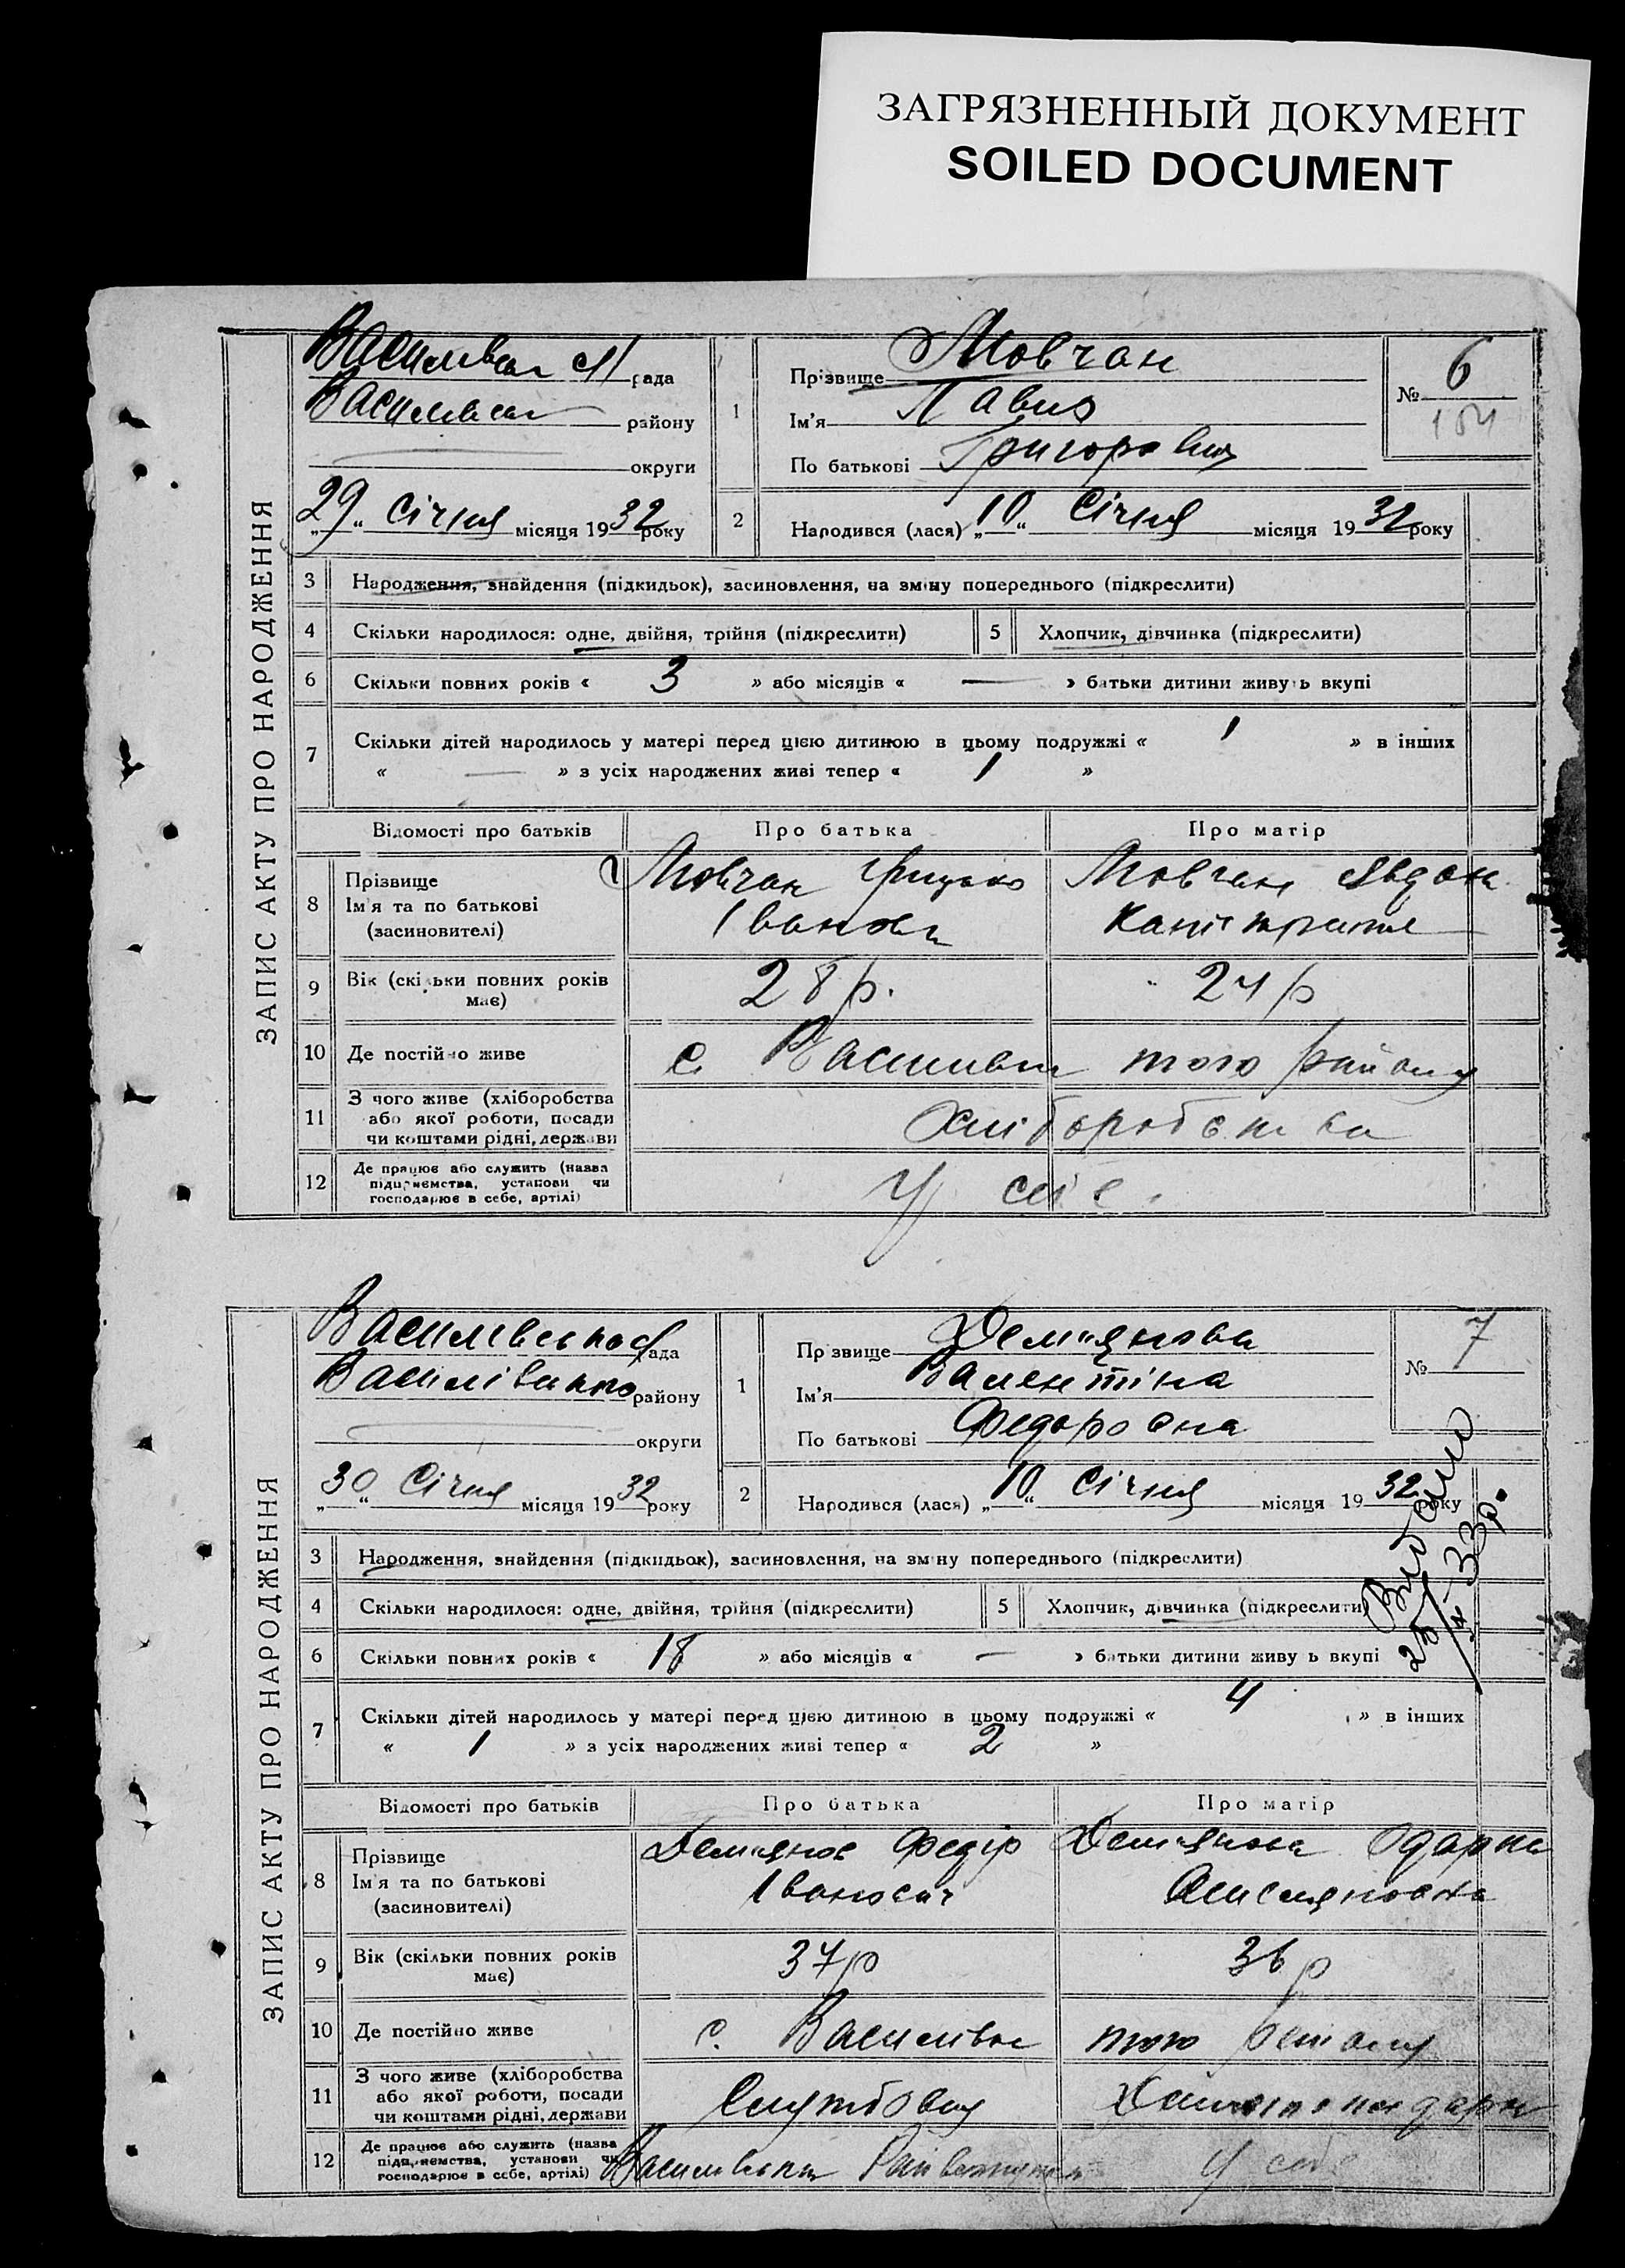 ЗАГРЯЗНЕННЫЙ ДОКУМЕНТ
SOILED DOCUMENT
ЗАПИС АКТУ ПРО НАРОДЖЕННЯ
рада
району
округи
„29“ Січня місяця 1932 року
1
Прізвище Мовчан
Ім'я Павло
По батькові Григорович
№ 6
184
2
Народився (лася) „10“ Січня місяця 1932 року
3 Народження, знайдення (підкидьок), засиновлення, на зміну попереднього (підкреслити)
4 Скільки народилося: одне, двійня, трійня (підкреслити)
5 Хлопчик, дівчинка (підкреслити)
6 Скільки повних років « 3 » або місяців « — » батьки дитини живуть вкупі
7 Скільки дітей народилось у матері перед цією дитиною в цьому подружжі « 1 » в інших
« — » з усіх народжених живі тепер « 1 »
Відомості про батьків
Про батька
Про матір
8 Прізвище
Ім'я та по батькові
(засиновителі)
Мовчан Грицько
Мовчан
9 Вік (скільки повних років
має)
28 р.
24 р
10 Де постійно живе
с. Василівка того району
11 З чого живе (хліборобства
або якої роботи, посади
чи коштами рідні, держави
Хліборобства
12 Де працює або служить (назва
підприємства, установи чи
господарює в себе, артілі)
У себе
ЗАПИС АКТУ ПРО НАРОДЖЕННЯ
Василівська рада
Василівського району
округи
„30“ Січня місяця 1932 року
1
Прізвище Дем'янова
Ім'я Валентіна
По батькові Федоровна
№ 7
2
Народився (лася) „10“ Січня місяця 1932 року
Видано
33р.
3 Народження, знайдення (підкидьок), засиновлення, на зміну попереднього (підкреслити)
4 Скільки народилося: одне, двійня, трійня (підкреслити)
5 Хлопчик, дівчинка (підкреслити)
6 Скільки повних років « 18 » або місяців « — » батьки дитини живуть вкупі
7 Скільки дітей народилось у матері перед цією дитиною в цьому подружжі « 4 » в інших
« 1 » з усіх народжених живі тепер « 2 »
Відомості про батьків
Про батька
Про матір
8 Прізвище
Ім'я та по батькові
(засиновителі)
Дем'янов Федір
Іванович
Дем'янова Одарка
9 Вік (скільки повних років
має)
37р
36 р
10 Де постійно живе
с. Василівка того району
11 З чого живе (хліборобства
або якої роботи, посади
чи коштами рідні, держави
Службовец
12 Де працює або служить (назва
підприємства, установи чи
господарює в себе, артілі)
У себе